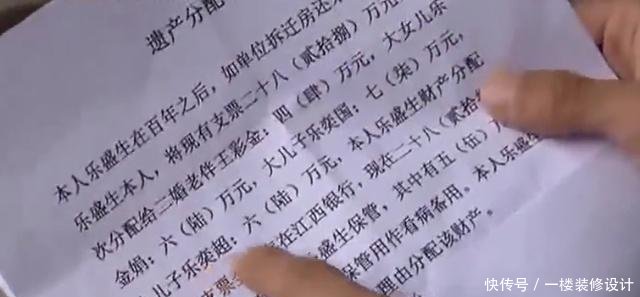 遗产分配
本人乐盛生在百年之后，如单位拆迁房还
乐盛生本人，将现有支票二十八（贰拾捌）万元
次分配给二婚老伴王彩金：四（肆）万元，大女儿乐
金娟：六（陆）万元，大儿子乐奕国：七（柒）万元，
儿子乐奕超：六（陆）万元，本人乐盛生财产分配
支票 在江西银行，现在二十八（贰拾
盛生保管，其中有五（伍）万
保管用作看病备用。本人乐盛
理由分配该财产。
快传号／一楼装修设计